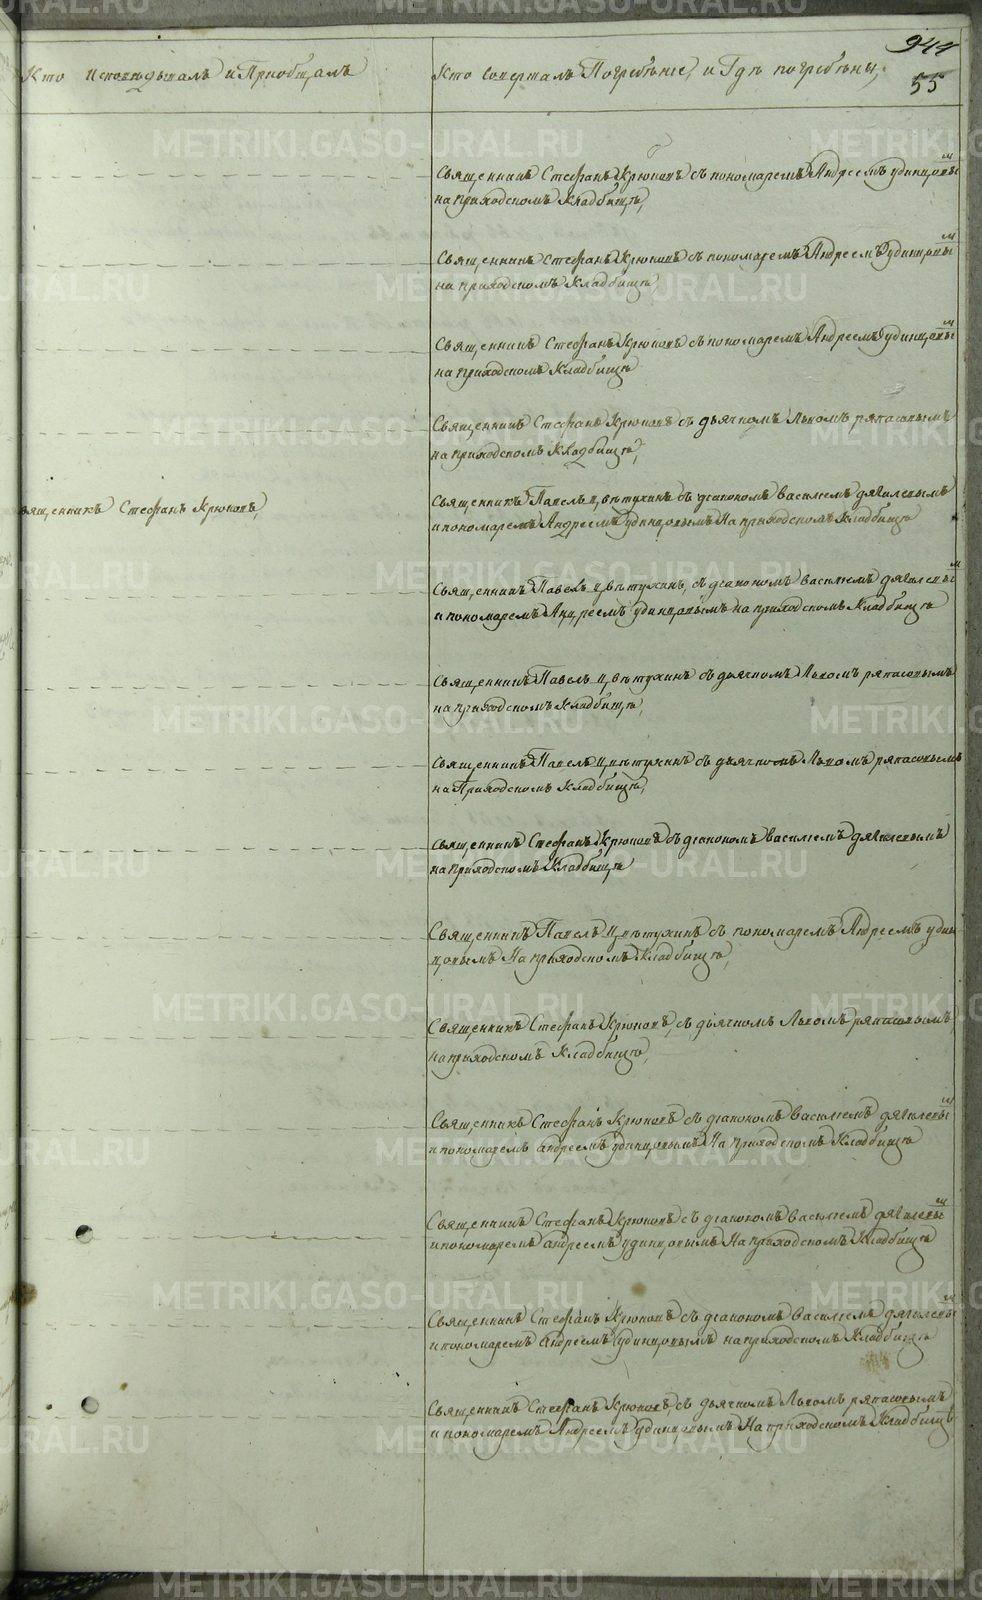 944
55
Кто Исповѣдывалъ и Приобщалъ
Кто Совершалъ Погребѣніе, и Гдѣ погребѣны,
Священникъ Стефанъ Крюковъ съ пономаремъ Андреемъ удинцовымъ
на приходскомъ Кладбищѣ,
Священникъ Стефанъ Крюковъ съ пономаремъ Андреемъ удинцовымъ
на приходскомъ Кладбищѣ,
Священникъ Стефанъ Крюковъ съ пономаремъ Андреемъ удинцовымъ
на приходскомъ Кладбищѣ
Священникъ Стефанъ Крюковъ съ дьячкомъ Львомъ ряпасовымъ
на приходскомъ Кладбищѣ,
Священникъ Стефанъ Крюковъ,
Священникъ Павелъ Цвѣтухинъ съ діакономъ василіемъ дягилевымъ
и пономаремъ Андреемъ удинцовымъ На приходскомъ Кладбищѣ
Священникъ Павелъ Цвѣтухинъ, съ діакономъ василіемъ дягилевымъ
и пономаремъ Андреемъ удинцовымъ на приходскомъ Кладбищѣ
Священникъ Павелъ Цвѣтухинъ съ дьячкомъ Львомъ ряпасовымъ
на приходскомъ Кладбищѣ,
Священникъ Павелъ Цвѣтухинъ съ дьячкомъ Львомъ ряпасовымъ
на Приходскомъ Кладбищѣ,
Священникъ Стефанъ Крюковъ съ діакономъ василіемъ дягилевымъ
на приходскомъ Кладбищѣ
Священникъ Павелъ Цвѣтухинъ съ пономаремъ Андреемъ удин
цовымъ На приходскомъ Кладбищѣ,
Священникъ Стефанъ Крюковъ, съ дьячкомъ Львомъ ряпасовымъ
на приходскомъ Кладбищѣ,
Священникъ Стефанъ Крюковъ съ діакономъ василіемъ дягилевымъ
и пономаремъ андреемъ удинцовымъ На приходскомъ Кладбищѣ
Священникъ Стефанъ Крюковъ съ діакономъ василіемъ дягилевымъ
и пономаремъ андреемъ удинцовымъ На приходскомъ Кладбищѣ
Священникъ Стефанъ Крюковъ съ діакономъ василіемъ дягилевымъ
и пономаремъ андреемъ удинцовымъ на приходскомъ Кладбищѣ
Священникъ Стефанъ Крюковъ, съ дьячкомъ Львомъ ряпасовымъ
и пономаремъ Андреемъ удинцовымъ На приходскомъ Кладбищѣ